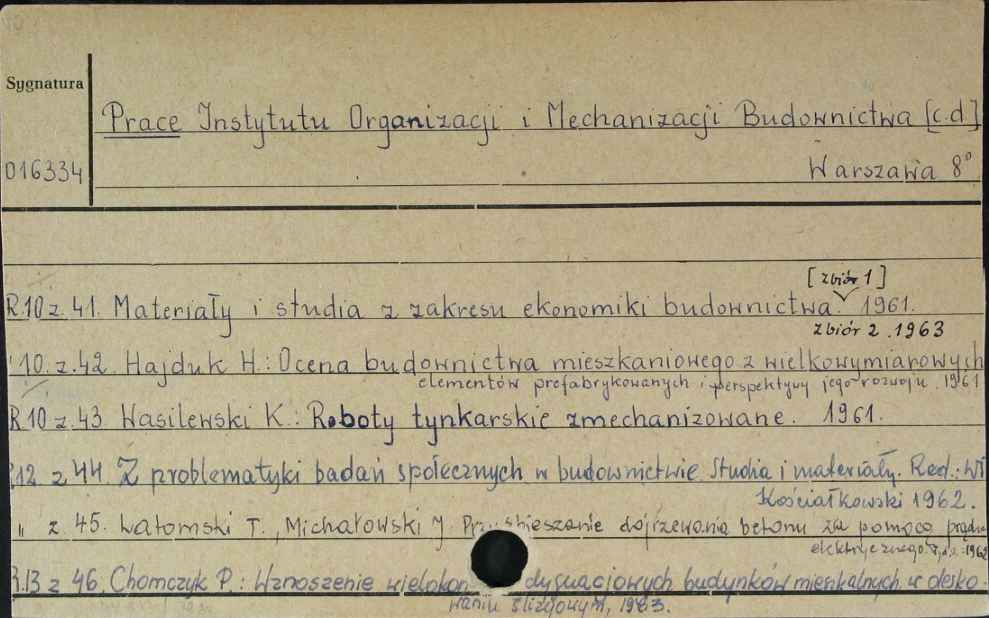 Sygnatura
Prace Instytutu Organizacji i Mechanizacji Budownictwa [c.d]
016334
Warszawa 8°
[zbiór 1]
R.10 z. 41. Materiały i studia z zakresu ekonomiki budownictwa. 1961.
zbiór 2. 1963
10. z. 42. Hajduk H.: Ocena budownictwa mieszkaniowego z wielkowymiarowych
elementów prefabrykowanych i perspektywy jego rozwoju. 1961
R.10 z. 43 Wasilewski K.: Roboty tynkarskie zmechanizowane. 1961.
R12 z 44. Z problematyki badań społecznych w budownictwie. Studia i materiały. Red.: Wł
Kościałkowski 1962.
" z. 45. Watomski T., Michałowski J. dojrzewania betonu za pomocą prądu
elektrycznego. 1962
R.13 z 46. Chomczyk P.: Wznoszenie budynków mieszkalnych w desko-
waniu ślizgowym, 1963.